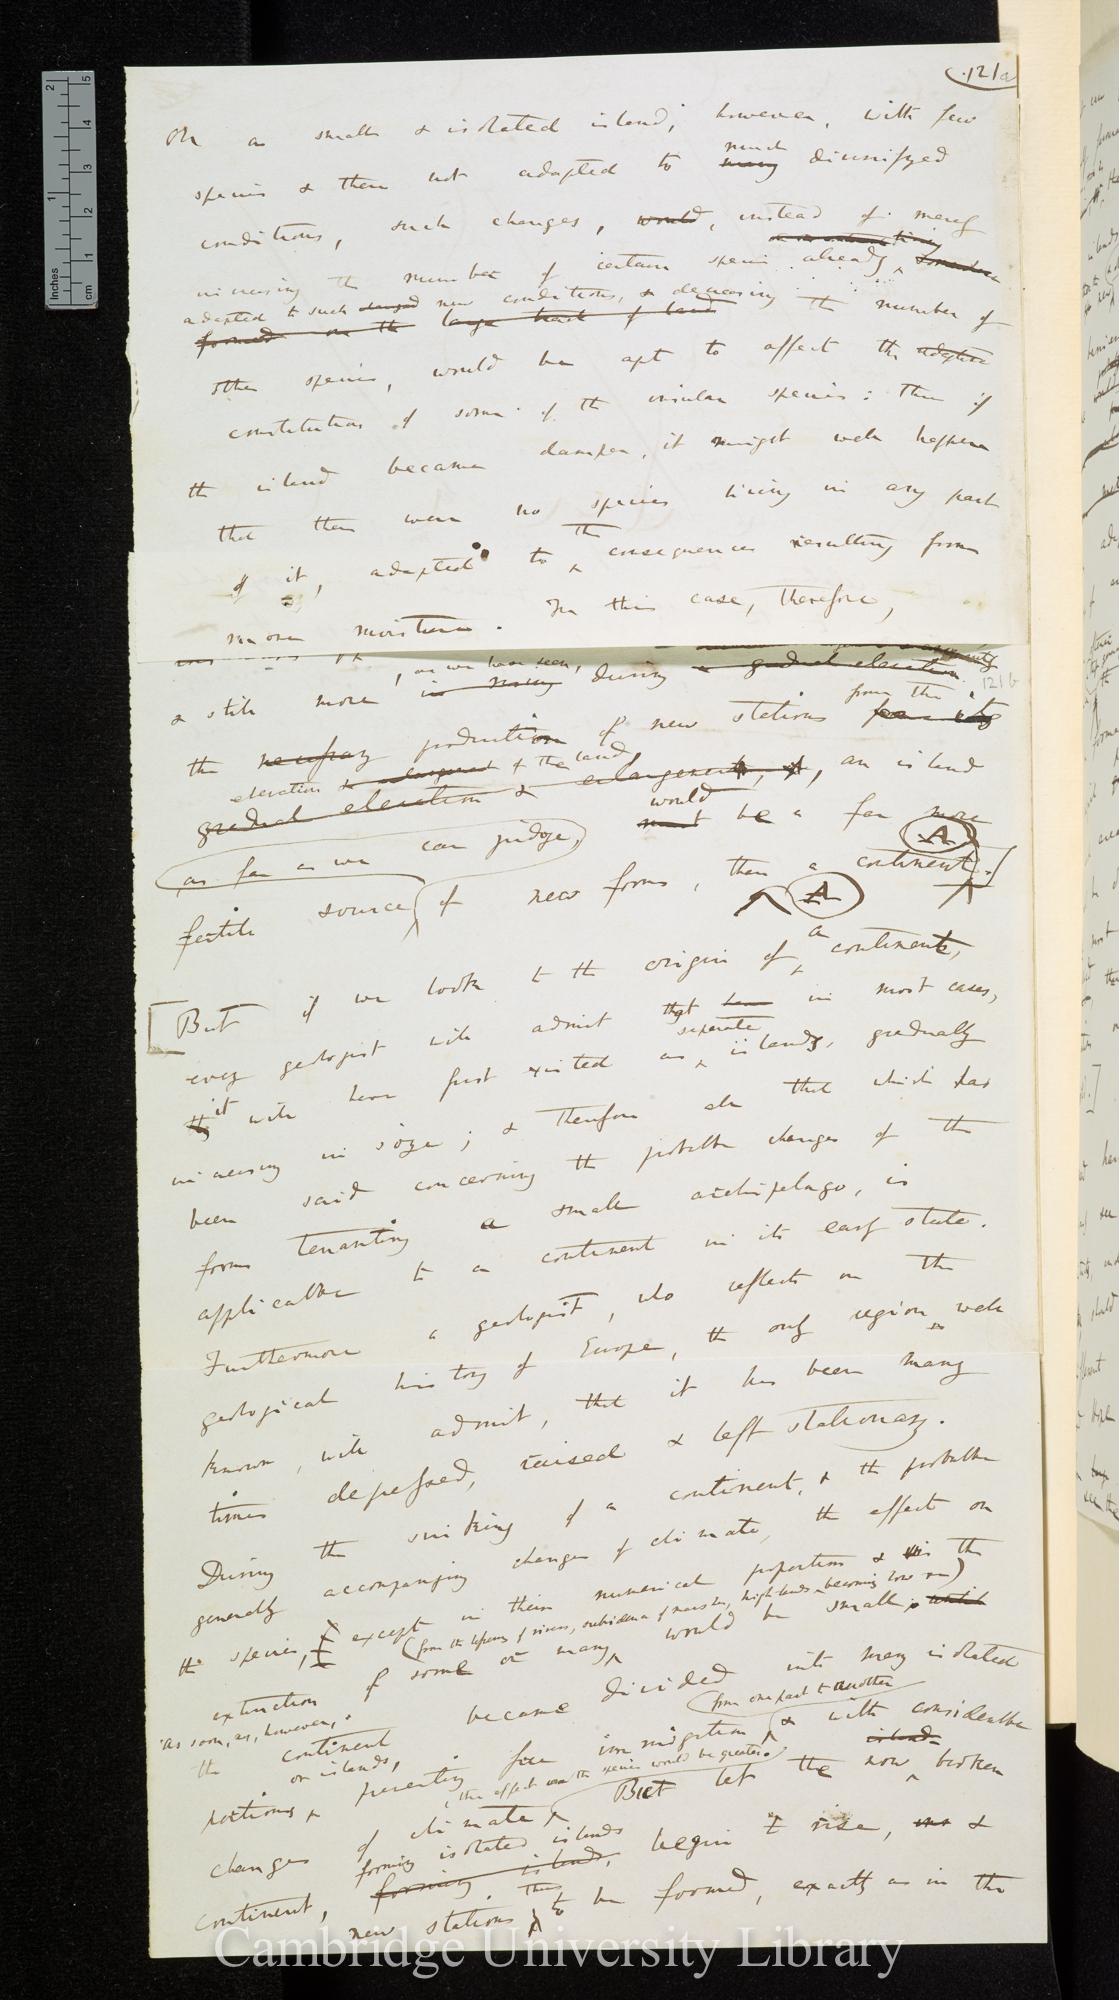 121a
On a small & isolated island, however, with few
species & these not adapted to many much diversified
conditions, such changes, would, instead of merely
increasing the number of certain species already
adapted to such new conditions, & decreasing the number of
formed on the large tract of land
other species, would be apt to affect the
constitution of some of the insular species: thus if
the island became damper, it might well happen
that there were no species living in any part
of it, adapted to the consequences resulting from
more moisture. In this case, therefore,
& still more , as we have seen, during a gradual elevation
121b
the necessary production of new stations from the
elevation & enlargement of the land,
gradual elevation & enlargement, an island
would be a far more
as far as we can judge,
fertile source of new forms, than a continent.
A
A
[But if we look to the origin of a continent,
every geologist will admit that in most cases,
it will have first existed as separate islands, gradually
increasing in size; & therefore all that which has
been said concerning the probable changes of the
forms tenanting a small archipelago, is
applicable to a continent in its early state.
Furthermore a geologist, who reflects on the
geological history of Europe, the only region well
known, will admit, that it has been many
times depressed, raised & left stationary.
During the sinking of a continent, & the probable
generally accompanying changes of climate, the effect on
the species, except in their numerical proportions & in the
(from the lessening of rivers, subsidence of marshes, high-lands becoming low &c)
extinction of some or many, would be small; until
as soon, as, however,
the continent became divided into many isolated
portions or islands, preventing free immigration from one part to another & with considerable
changes of climate, the effect on the species would be greater. But let the now broken
island
continent, forming isolated islands forming islands, begin to rise, &
new stations thus to be formed, exactly as in the
Inches
1
2
cm
1
2
3
4
5
Cambridge University Library